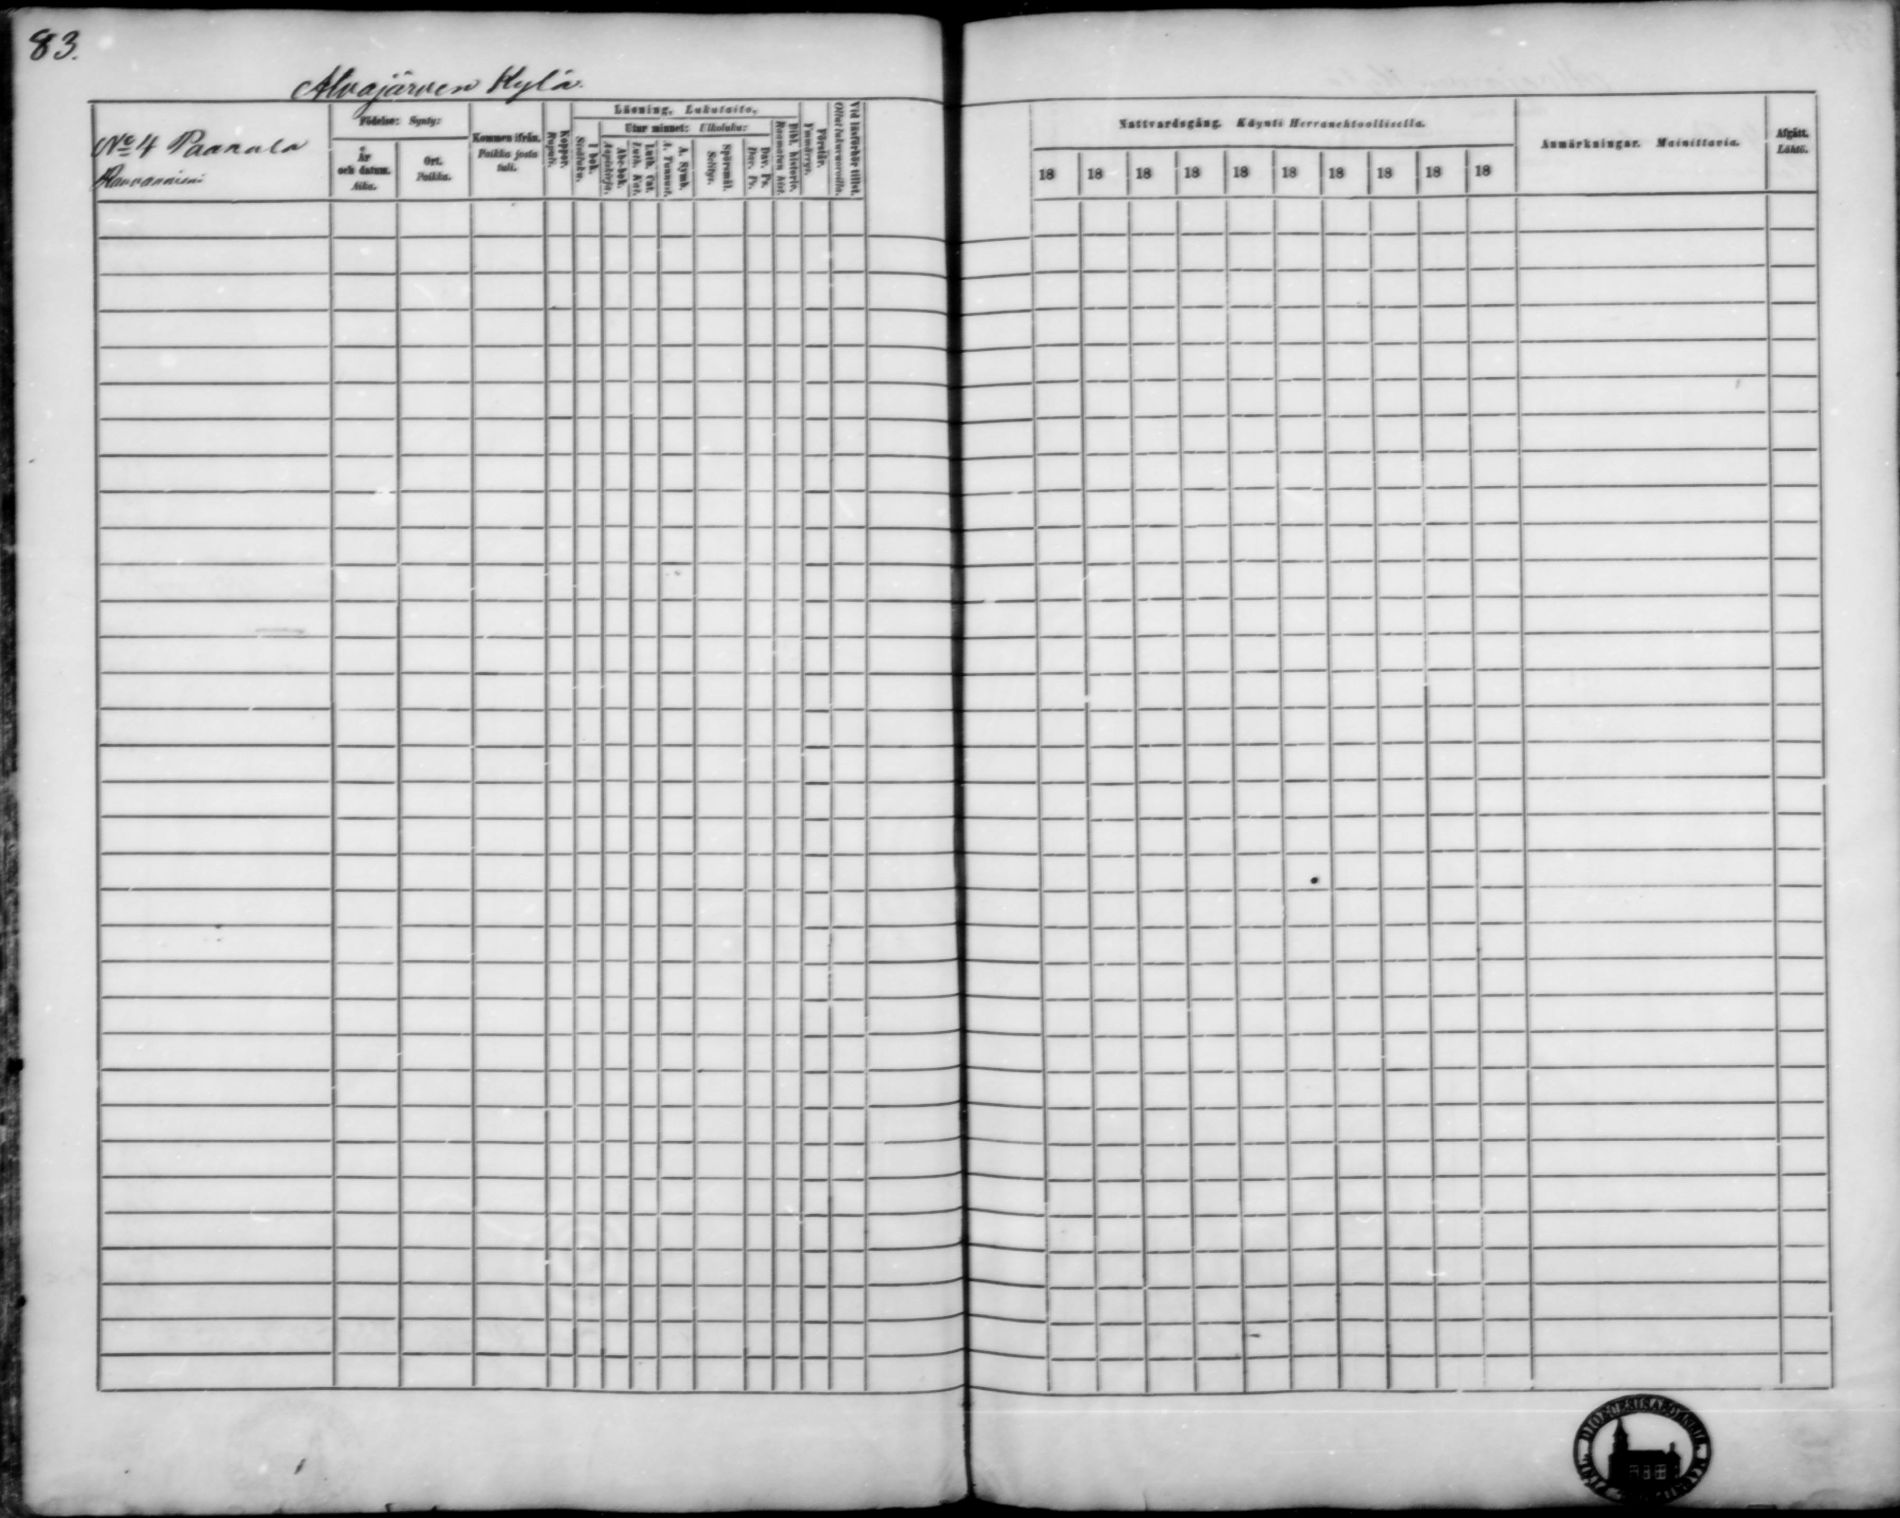 83.
Alvajärven Kylä.
No 4 Paanala
Födelse: Synty:
År
och datum.
Aika.
Ort.
Paikka.
Kommen ifrån.
Paikka josta
tuli.
Koppor.
Rupuli.
Läsning. Lukutaito.
I bok.
Sisäluku.
Utur minnet: Ulkoluku:
Abc-bok.
Aapiskirja.
Luth. Cat.
Luth. Kat.
A. Symb.
A. Tunnust.
Spörsmål.
Selitys.
Dav. Ps.
Dav. Ps.
Bibl. historie.
Raamatun hist.
Förstår.
Ymmärrys.
Vid läsförhör tillst.
Ollut lukuvuoroilla.
Nattvardsgång. Käynti Herranehtoollisella.
18 18 18 18 18 18 18 18 18 18
Anmärkningar. Mainittavia.
Afgått.
Lähtö.